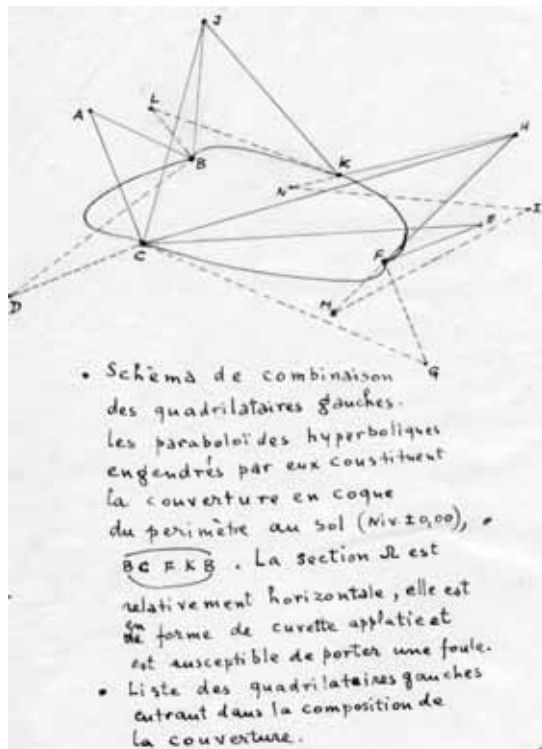 J
A
L
B
H
K
N
E
I
C
F
M
D
G
• Schèma de combinaison
des quadrilataires gauches.
les paraboloïdes hyperboliques
engendrés par eux constituent
la couverture en coque
du perimètre au sol (Niv. ±0,00),
B C F K B . La section Ω est
relativement horizontale, elle est
en forme de cuvette applatie et
est susceptible de porter une foule.
• Liste des quadrilataires gauches
entrant dans la composition de
la couverture.